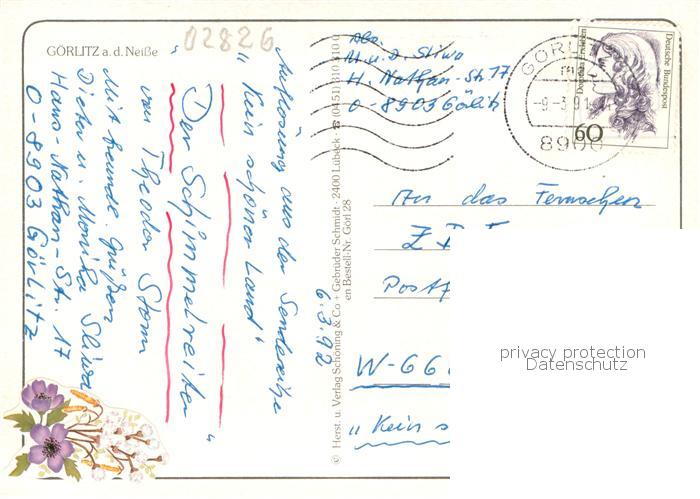 GÖRLITZ a. d. Neiße
02826
Auflösung aus der Sendereihe
„Kein schöner Land"
„Der Schimmelreiter"
von Theodor Storm
Mit freundl. Grüßen
Dieter u. Monika Sliwa
Hans-Nathan-Str. 17
O-8903 Görlitz
6.3.92
© Herst. u. Verlag Schöning & Co + Gebrüder Schmidt · 2400 Lübeck · ☎ (0451) 810 310 0
en Bestell-Nr. Görl 28
Abs.
M. u. D. Sliwa
H. Nathan-Str. 17
O-8903 Görlitz
GÖRLI
8900
Dorothea Erxleben
Deutsche Bundespost
60
An das Fernsehen
Z
Postf
W-66
„Kein s
privacy protection
Datenschutz